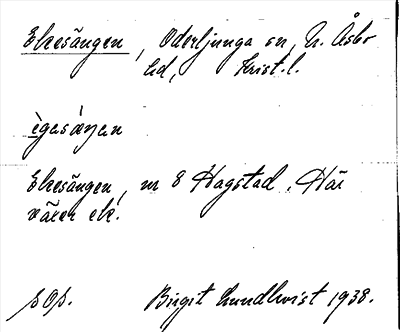 Ekesängen, Oderljunga sn, N. Åsbo
hd, Krist. l.
ègasäŋan
Ekesängen, nr 8 Hagstad. Här
växer ek.
s Os.
Birgit Lundkvist 1938.